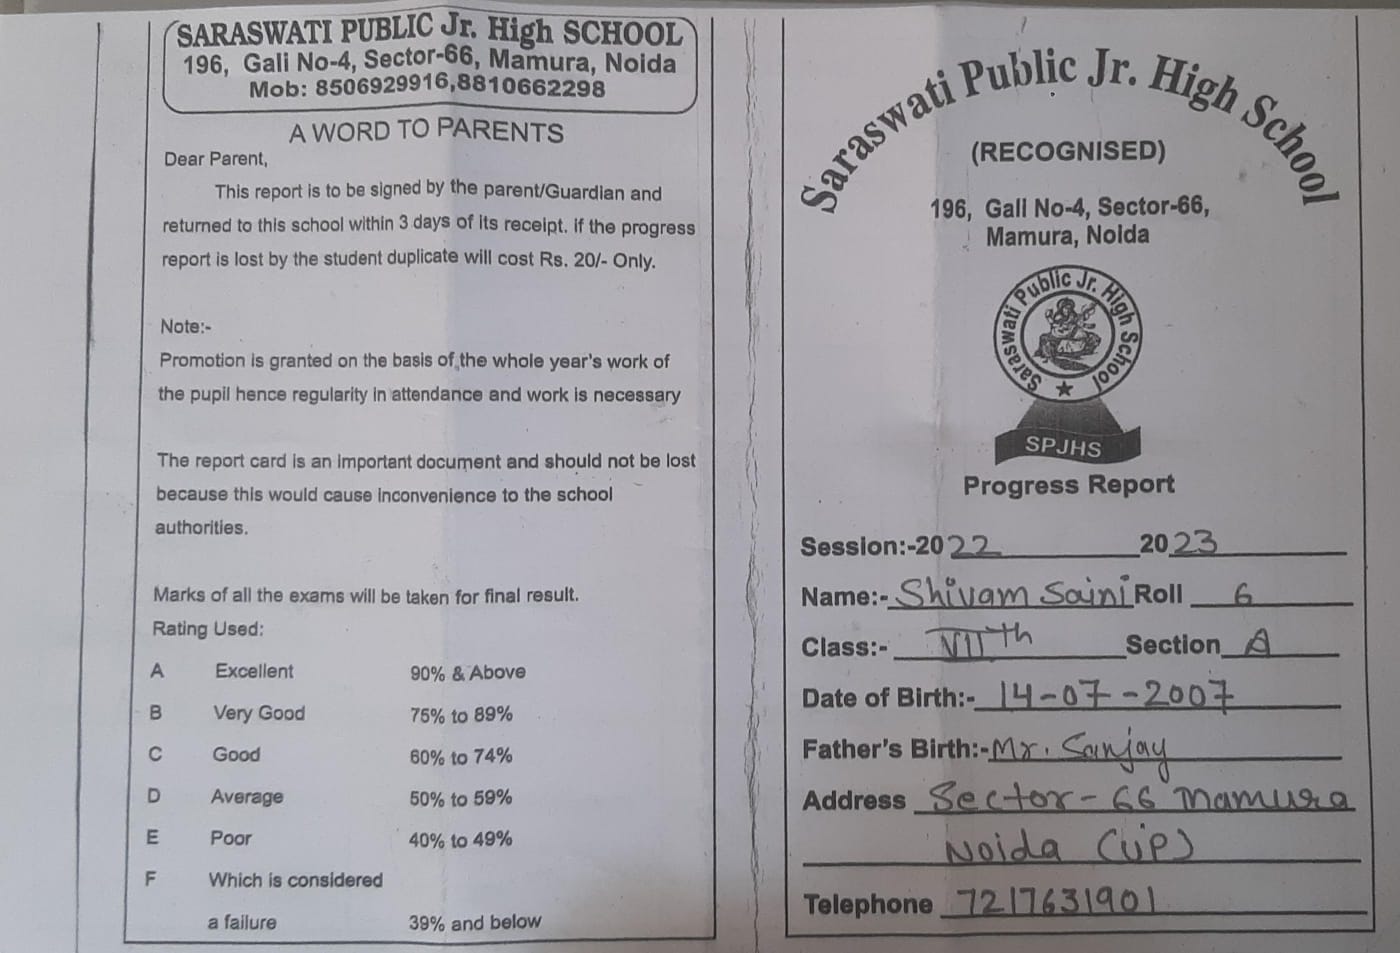 SARASWATI PUBLIC Jr. High SCHOOL
196, Gali No-4, Sector-66, Mamura, Noida
Mob: 8506929916,8810662298
A WORD TO PARENTS
Dear Parent,
This report is to be signed by the parent/Guardian and
returned to this school within 3 days of its receipt. if the progress
report is lost by the student duplicate will cost Rs. 20/- Only.
Note:-
Promotion is granted on the basis of the whole year's work of
the pupil hence regularity in attendance and work is necessary
The report card is an important document and should not be lost
because this would cause inconvenience to the school
authorities.
Marks of all the exams will be taken for final result.
Rating Used:
A Excellent 90% & Above
B Very Good 75% to 89%
C Good 60% to 74%
D Average 50% to 59%
E Poor 40% to 49%
F Which is considered
a failure 39% and below
Saraswati Public Jr. High School
(RECOGNISED)
196, Gali No-4, Sector-66,
Mamura, Noida
Saraswati Public Jr. High School
SPJHS
Progress Report
Session:-2022 2023
Name:- Shivam Saini Roll 6
Class:- VIIth Section A
Date of Birth:- 14-07-2007
Father's Birth:- Mr. Sanjay
Address Sector-66 Mamura
Noida (UP)
Telephone 7217631901